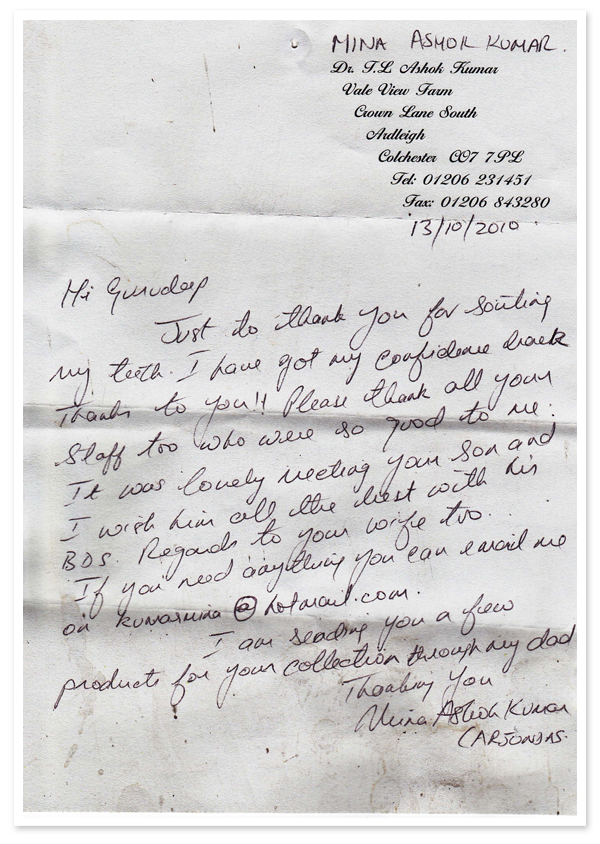 MINA ASHOK KUMAR.
Dr. T.L Ashok Kumar
Vale View Farm
Crown Lane South
Ardleigh
Colchester CO7 7PL
Tel: 01206 231451
Fax: 01206 843280
13/10/2010
Hi Gurudeep
Just to thank you for sorting
my teeth. I have got my confidence back
Thanks to you!! Please thank all your
Staff too who were so good to me.
It was lovely meeting your son and
I wish him all the best with his
BDS. Regards to your wife too.
If you need anything you can email me
on kumarmina@hotmail.com.
I am sending you a few
products for your collection through my dad
Thanking You
Mina Ashok Kumar